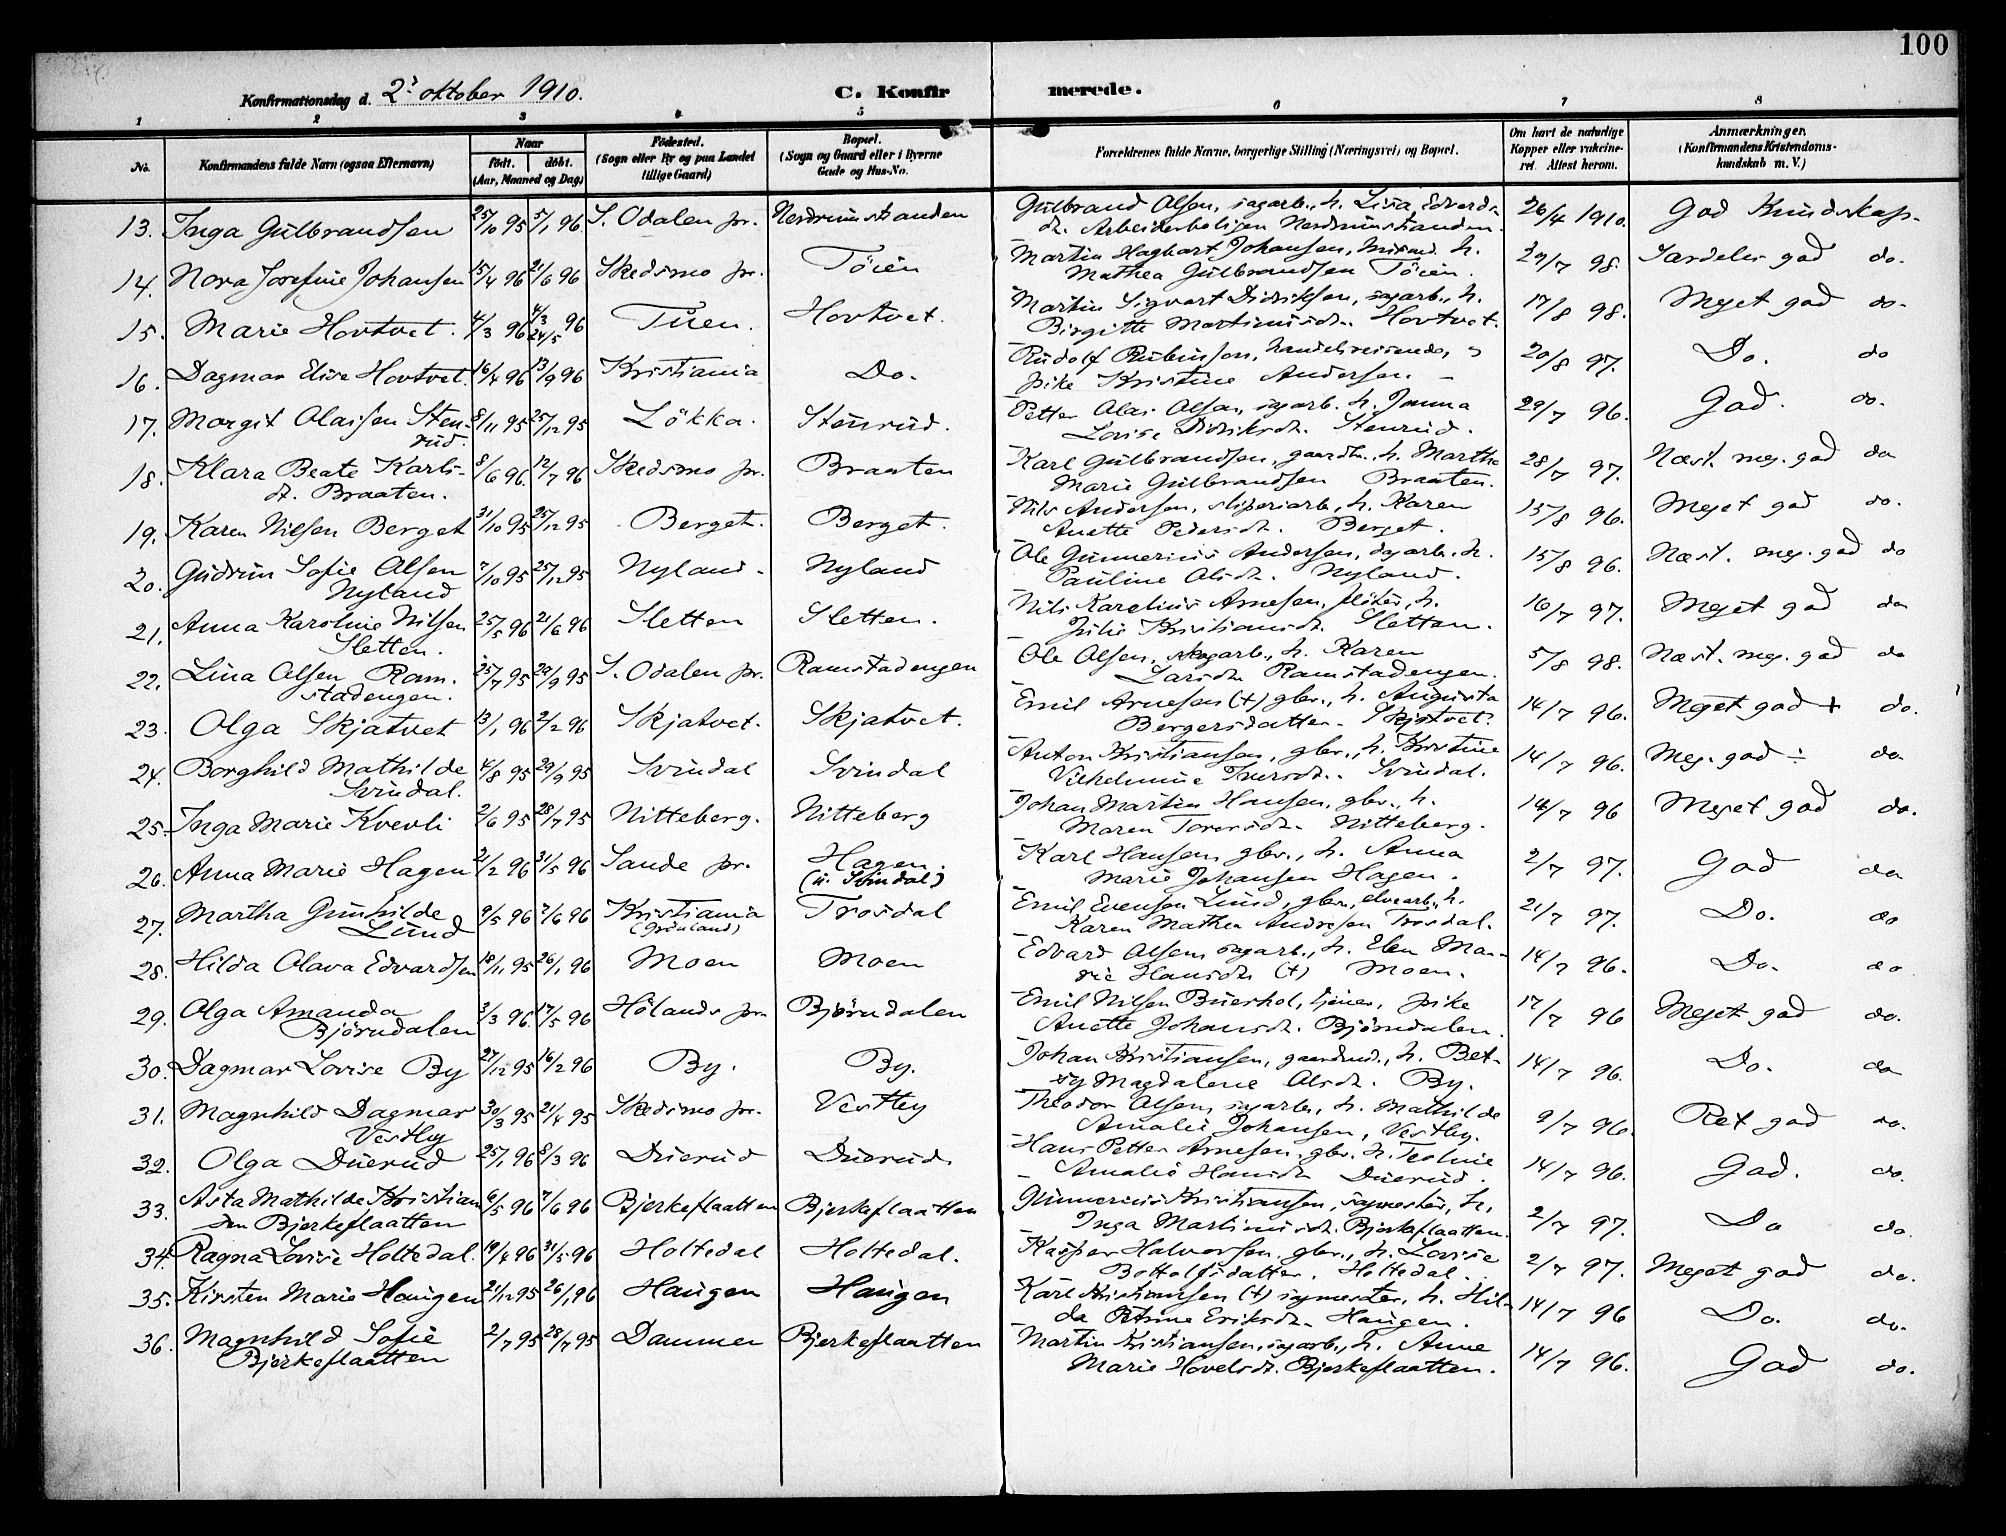 100
Konfirmationsdag d. 2' oktober 1910.
C. Konfirmerede.
1 2 3 4 5 6 7 8
No.
Konfirmandens fulde Navn (ogsaa Efternavn)
Naar
født. døbt.
(Aar, Maaned og Dag)
Fødested.
(Sogn eller By og paa Landet
tillige Gaard)
Bopæl.
(Sogn og Gaard eller i Byerne
Gade og Hus-No.
Forældrenes fulde Navne, borgerlige Stilling (Næringsvei) og Bopæl.
Om havt de naturlige
Kopper eller vaccine-
ret. Attest herom.
Anmærkninger.
(Konfirmandens Kristendoms-
kundskab m. V.)
13. Inga Gulbrandsen 25/10 95 5/1 96 S. Odalen pr. Nerdrumstranden Gulbrand Olsen, sagarb., h. Lina Edvards- 26/4 1910. God Kundskap.
dt. Arbeiderboligen Nerdrumstranden.
14. Nora Josefine Johansen 15/4 96 21/6 96 Skedsmo pr. Töien Martin Hagbart Johansen, h. 29/7 98. Særdeles god do.
Mathea Gulbrandsen Töien.
15. Marie Hovtvet. 4/3 96 4/3 24/5 96 Tuen. Hovtvet. Martin Sigvart Didriksen, sagarb., h. 17/8 98. Meget god do.
Birgitte Martinusdt. Hovtvet.
16. Dagmar Elise Hovtvet. 16/4 96 13/9 96 Kristiania Do. Rudolf Rubinsson, handelsreisende, 20/8 97. Do. do
pike Kristine Andersen.
17. Margit Olaisen Sten- 8/11 95 25/12 95 Lökka. Stenrud. Petter Olai Olsen, sagarb. h. Jonna 29/7 96. God. do.
rud. Lovise Didriksdt. Stenrud.
18. Klara Beate Karls- 8/6 96. 12/7 96 Skedsmo pr. Braaten Karl Gulbrandsen, gaardbr., h. Martha 28/7 97. Næst. meg. god do
dt. Braaten. Marie Gulbrandsen Braaten.
19. Karen Nilsen Berget 31/10 95 25/12 95 Berget. Berget. Nils Andersen, sliperiarb., h. Karen 15/8 96. Meget god do.
Anette Pedersdt. Berget.
20. Gudrun Sofie Olsen 7/10 95 25/12 95 Nyland. Nyland Ole Gunnerius Andersen, dagarb. h. 15/8 96. Næst. meg. god do
Nyland Pauline Olsdt. Nyland.
21. Anna Karoline Nilsen 25/5 96 21/6 96 Sletten Sletten. Nils Karelius Arnesen, flöter, h. 16/7 97. Meget god do
Sletten. Julie Kristiansdt. Sletten.
22. Lina Olsen Ram- 25/7 95 29/9 95 S. Odalen pr. Ramstadengen Ole Olsen, skogarb., h. Karen 5/8 98. Næst. meg. god do
stadengen. Larsdt. Ramstadengen.
23. Olga Skjatvet 13/1 96 2/2 96 Skjatvet. Skjatvet. Emil Arnesen (+) gbr., h. Augusta 14/7 96. Meget god + do.
Bergersdatter. Skjatvet.
24. Borghild Mathilde 4/8 95 29/9 95 Svindal Svindal Anton Kristiansen, gbr., h. Kristine 14/7 96. Meg. god ÷ do.
Svindal. Vilhelmine Iversdt. Svindal.
25. Inga Marie Kvevli 2/6 95 28/7 95 Nitteberg. Nitteberg Johan Martin Hansen, gbr., h. 14/7 96 Meget god do.
Maren Toversdt. Nitteberg.
26. Anna Marie Hagen 21/2 96 31/5 96 Sande pr. Hagen. Karl Hansen, gbr., h. Anna 2/7 97. God do
(u. Svindal) Marie Johansen Hagen.
27. Martha Gunhilde 9/5 96 7/6 96 Kristiania Trosdal Emil Evensen Lund, gbr., elvearb., h. 21/7 97. Do. do
Lund (Grönland) Karen Mathea Andresen Trosdal.
28. Hilda Olava Edvardsen 18/11 95 26/1 96 Moen Moen Edvard Olsen, sagarb., h. Elen Ma- 14/7 96. Do. do
rie Hansdt. (+) Moen.
29. Olga Amanda 2/3 96. 17/5 96 Hölands pr. Björndalen Emil Nilsen Buerhol, tjener, pike 17/7 96 Meget god do.
Björndalen Anette Johansdt. Björndalen.
30. Dagmar Lovise By 27/12 95 16/2 96 By. By. Johan Kristiansen, gaardmd., h. Bet- 14/7 96. Do. do
sy Magdalene Olsdt. By.
31. Magnhild Dagmar 30/3 95 21/4 95 Skedsmo pr. Vestby Theodor Olsen, sagarb., h. Mathilde 9/7 96. Ret god do.
Vestby Amalie Johansen, Vestby.
32. Olga Duerud 25/1 96 8/3 96 Duerud Duerud. Hans Petter Arnesen, gbr. h. Teoline 14/7 96. God. do.
Amalie Hansdt. Duerud.
33. Asta Mathilde Kristian- 6/5 96 7/6 96 Bjerkeflaatten Bjerkeflaatten Gunnerius Kristiansen, sagmester, h. 2/7 97. Do do.
sen Bjerkeflaatten Inga Martinusdt. Bjerkeflaatten.
34. Ragna Lovise Holtedal. 19/4 96 31/5 96 Holtedal Holtedal. Kasper Halvorsen, gbr., h. Lovise 2/7 97. Meget god do.
Bottolfsdatter. Holtedal.
35. Kirsten Marie Haugen 21/12 95 26/1 96 Haugen Haugen Karl Kristiansen (+) sagmester, h. Hil- 14/7 96 Do. do.
da Otine Eriksdt. Haugen.
36. Magnhild Sofie 2/7 95 28/7 95 Dammen Bjerkeflaatten Martin Kristiansen, sagarb., h. Anne 14/7 96. God do.
Bjerkeflaatten Marie Hovelsdt. Bjerkeflaatten.